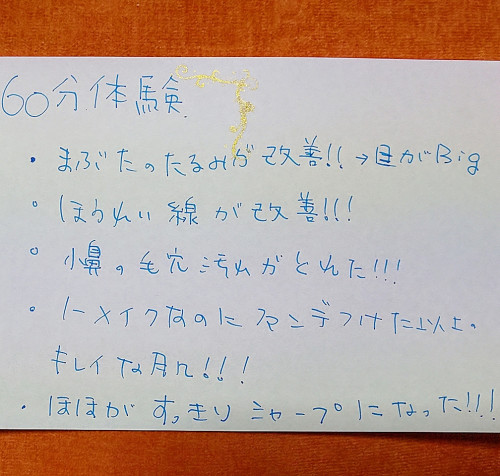 60分体験
・まぶたのたるみが改善!!→目がBig
・ほうれい線が改善!!!
・小鼻の毛穴汚れがとれた!!!
・ノーメイクなのにファンデつけた以上の
キレイな肌!!!
・ほほがすっきりシャープになった!!!